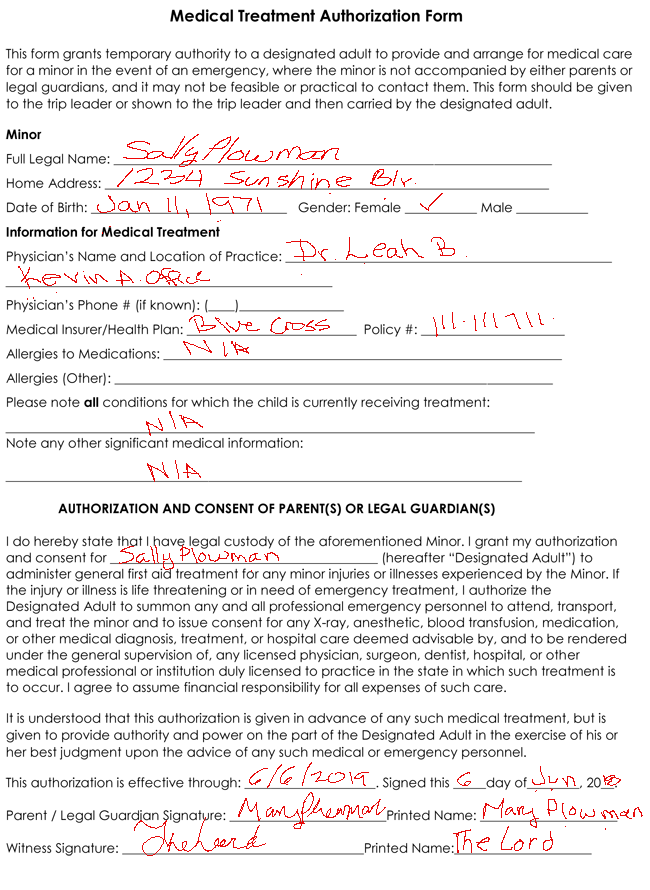 Medical Treatment Authorization Form
This form grants temporary authority to a designated adult to provide and arrange for medical care
for a minor in the event of an emergency, where the minor is not accompanied by either parents or
legal guardians, and it may not be feasible or practical to contact them. This form should be given
to the trip leader or shown to the trip leader and then carried by the designated adult.
Minor
Full Legal Name: Sally Plowman
Home Address: 1234 Sunshine Blr.
Date of Birth: Jan 11, 1971 Gender: Female ✓ Male
Information for Medical Treatment
Physician's Name and Location of Practice: Dr. Leah B.
Kevin A. Office
Physician's Phone # (if known): ( )
Medical Insurer/Health Plan: Blue Cross Policy #: 111-111711
Allergies to Medications: N/A
Allergies (Other):
Please note all conditions for which the child is currently receiving treatment:
N/A
Note any other significant medical information:
N/A
AUTHORIZATION AND CONSENT OF PARENT(S) OR LEGAL GUARDIAN(S)
I do hereby state that I have legal custody of the aforementioned Minor. I grant my authorization
and consent for Sally Plowman (hereafter "Designated Adult") to
administer general first aid treatment for any minor injuries or illnesses experienced by the Minor. If
the injury or illness is life threatening or in need of emergency treatment, I authorize the
Designated Adult to summon any and all professional emergency personnel to attend, transport,
and treat the minor and to issue consent for any X-ray, anesthetic, blood transfusion, medication,
or other medical diagnosis, treatment, or hospital care deemed advisable by, and to be rendered
under the general supervision of, any licensed physician, surgeon, dentist, hospital, or other
medical professional or institution duly licensed to practice in the state in which such treatment is
to occur. I agree to assume financial responsibility for all expenses of such care.
It is understood that this authorization is given in advance of any such medical treatment, but is
given to provide authority and power on the part of the Designated Adult in the exercise of his or
her best judgment upon the advice of any such medical or emergency personnel.
This authorization is effective through: 6/6/2019. Signed this 6 day of Jun, 20
Parent / Legal Guardian Signature: Mary Plowman Printed Name: Mary Plowman
Witness Signature: The Lord Printed Name: The Lord